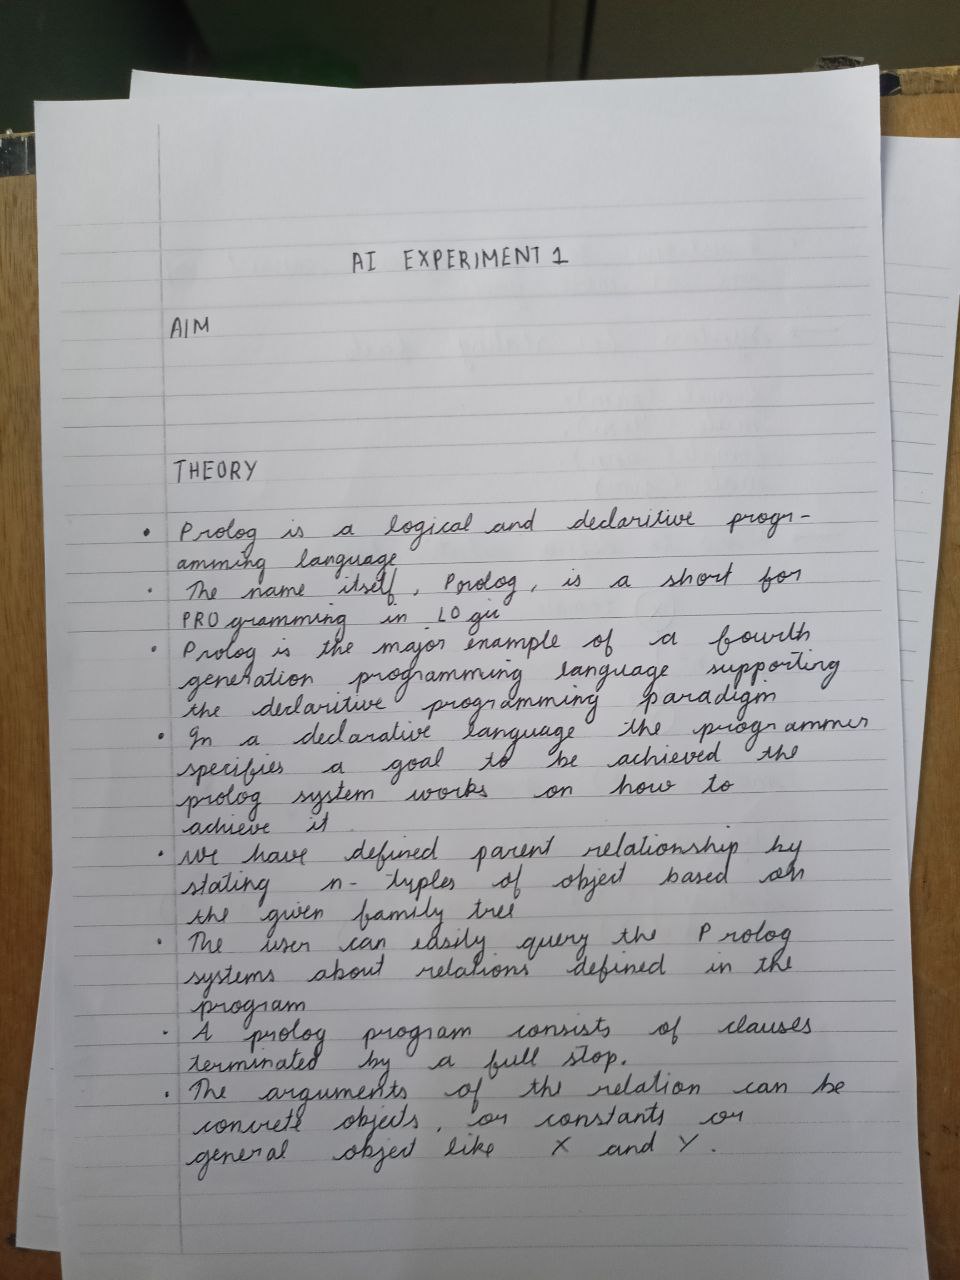 AI EXPERIMENT 1
AIM
THEORY
• Prolog is a logical and declaritive progr-
amming language
• The name itself, Prolog, is a short for
PROgramming in LOgic
• Prolog is the major example of a fourth
generation programming language supporting
the declaritive programming paradigm
• In a declarative language the programmer
specifies a goal to be achieved the
prolog system works on how to
achieve it.
• We have defined parent relationship by
stating n-typles of object based on
the given family tree
• The user can easily query the Prolog
systems about relations defined in the
program
• A prolog program consists of clauses
terminated by a full stop.
• The arguments of the relation can be
concrete objects, or constants or
general object like X and Y.